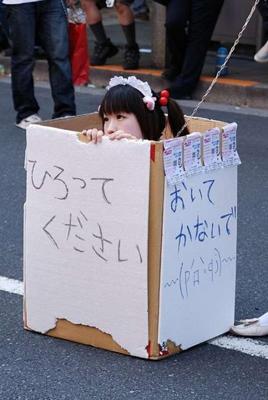 ひろって
ください
おいて
かないで